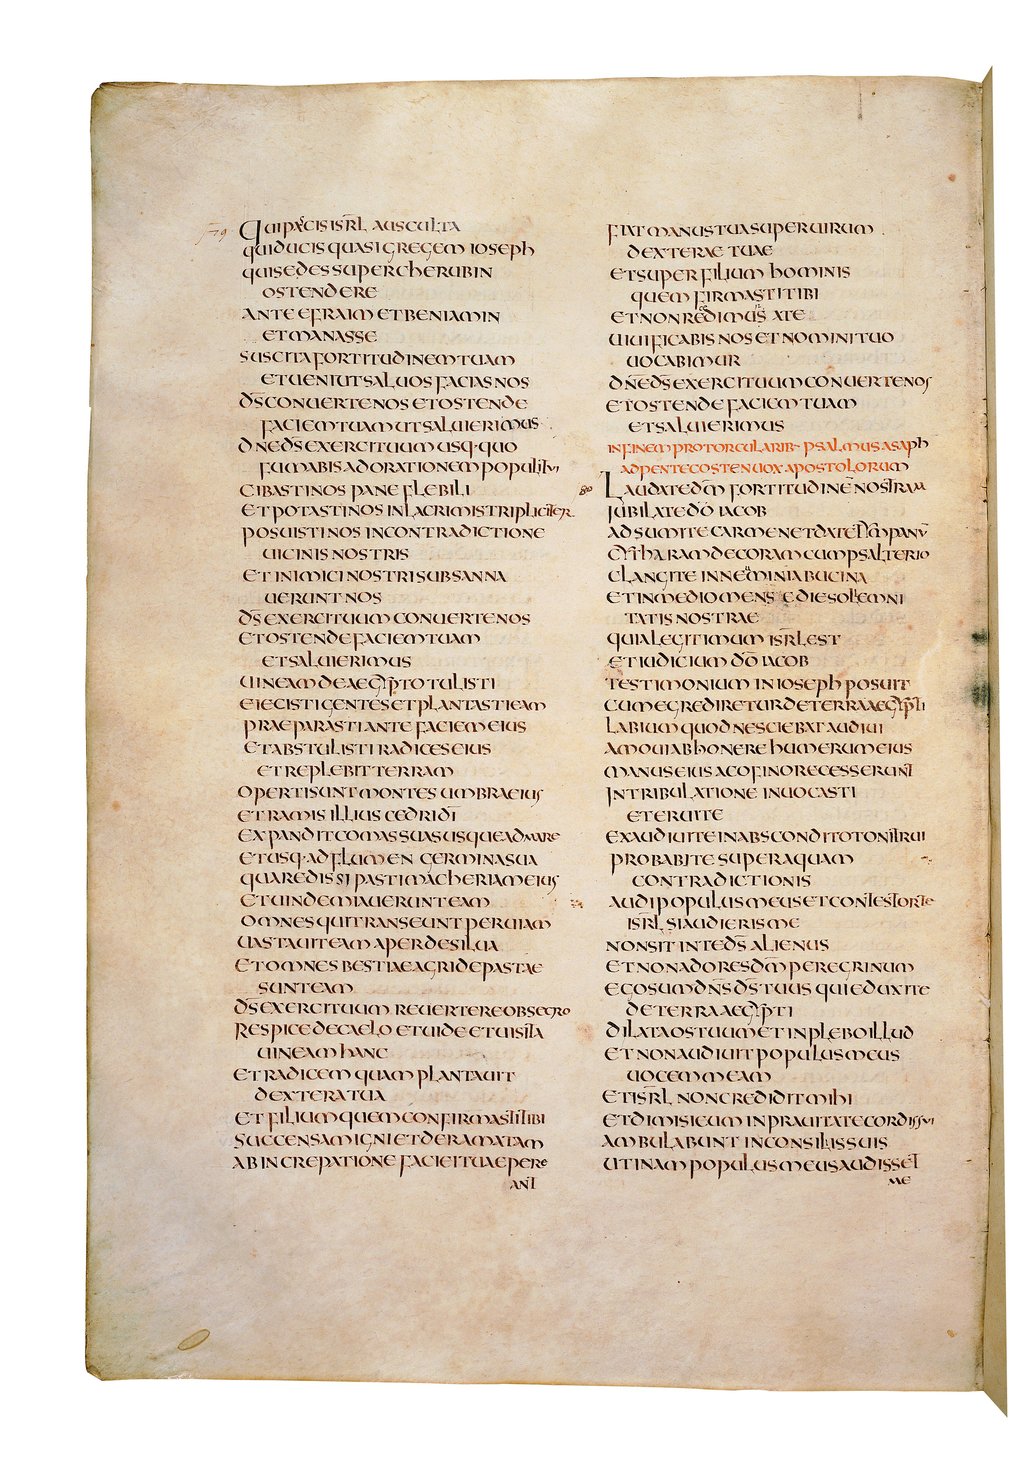 79
QUI PASCIS ISRL AUSCULTA
QUI DUCIS QUASI GREGEM IOSEPH
QUI SEDES SUPER CHERUBIN
OSTENDERE
ANTE EFRAIM ET BENIAMIN
ET MANASSE
SUSCITA FORTITUDINEM TUAM
ET UENI UT SALUOS FACIAS NOS
DS CONUERTE NOS ET OSTENDE
FACIEM TUAM UT SALUI ERIMUS
DNE DS EXERCITUUM USQ·QUO
FUMABIS AD ORATIONEM POPULI TUI
CIBASTI NOS PANE FLEBILI
ET POTASTI NOS IN LACRIMIS TRIPLICITER
POSUISTI NOS IN CONTRADICTIONE
UICINIS NOSTRIS
ET INIMICI NOSTRI SUBSANNA
UERUNT NOS
DS EXERCITUUM CONUERTE NOS
ET OSTENDE FACIEM TUAM
ET SALUI ERIMUS
UINEAM DE AEGYPTO TULISTI
EIECISTI GENTES ET PLANTASTI EAM
PRAEPARASTI ANTE FACIEM EIUS
ET ABSTULISTI RADICES EIUS
ET REPLEBIT TERRAM
OPERTI SUNT MONTES UMBRA EIUS
ET RAMIS ILLIUS CEDRI DI
EXPANDIT COMAS SUAS USQUE AD MARE
ET USQ·AD FLUMEN GERMINA SUA
QUARE DISSIPASTI MACHERIAM EIUS
ET UINDEMIAUERUNT EAM
OMNES QUI TRANSEUNT PER UIAM
UASTAUIT EAM APER DE SILUA
ET OMNES BESTIAE AGRI DEPASTAE
SUNT EAM
DS EXERCITUUM REUERTERE OBSECRO
RESPICE DE CAELO ET UIDE ET UISITA
UINEAM HANC
ET RADICEM QUAM PLANTAUIT
DEXTERA TUA
ET FILIUM QUEM CONFIRMASTI TIBI
SUCCENSAM IGNI ET DERAMATAM
AB INCREPATIONE FACIEI TUAE PERE
ANT
FIAT MANUS TUA SUPER UIRUM
DEXTERAE TUAE
ET SUPER FILIUM HOMINIS
QUEM FIRMASTI TIBI
ET NON REDIMUS A TE
UIUIFICABIS NOS ET NOMINI TUO
UOCABIMUR
DNE DS EXERCITUUM CONUERTE NOS
ET OSTENDE FACIEM TUAM
ET SALUI ERIMUS
IN FINEM PRO TORCULARIB· PSALMUS ASAPH
AD PENTECOSTEN UOX APOSTOLORUM
80
LAUDATE DM FORTITUDINE NOSTRAM
IUBILATE DO IACOB
ADSUMITE CARMEN ET DATE TYMPANU
CYTHARAM DECORAM CUM PSALTERIO
CLANGITE IN NEOMINIA BUCINA
ET IN MEDIO MENSE DIE SOLLEMNI
TATIS NOSTRAE
QUIA LEGITIMUM ISRL EST
ET IUDICIUM DO IACOB
TESTIMONIUM IN IOSEPH POSUIT
CUM EGREDIRETUR DE TERRA AEGYPTI
LABIUM QUOD NESCIEBAT AUDIUI
AMOUI AB HONERE HUMERUM EIUS
MANUS EIUS A COFINO RECESSERUNT
IN TRIBULATIONE INUOCASTI
ET ERUI TE
EXAUDIUI TE IN ABSCONDITO TONITRUI
PROBABI TE SUPER AQUAM
CONTRADICTIONIS
AUDI POPULUS MEUS ET CONTESTOR TE
ISRL SI AUDIERIS ME
NON SIT IN TE DS ALIENUS
ET NON ADORES DM PEREGRINUM
EGO SUM DNS DS TUUS QUI EDUXI TE
DE TERRA AEGYPTI
DILATA OS TUUM ET INPLEBO ILLUD
ET NON AUDIUIT POPULUS MEUS
UOCEM MEAM
ET ISRL NON CREDIDIT MIHI
ET DIMISI EUM IN PRAUITATE CORDIS SUI
AMBULABUNT IN CONSILIIS SUIS
UTINAM POPULUS MEUS AUDISSET
ME